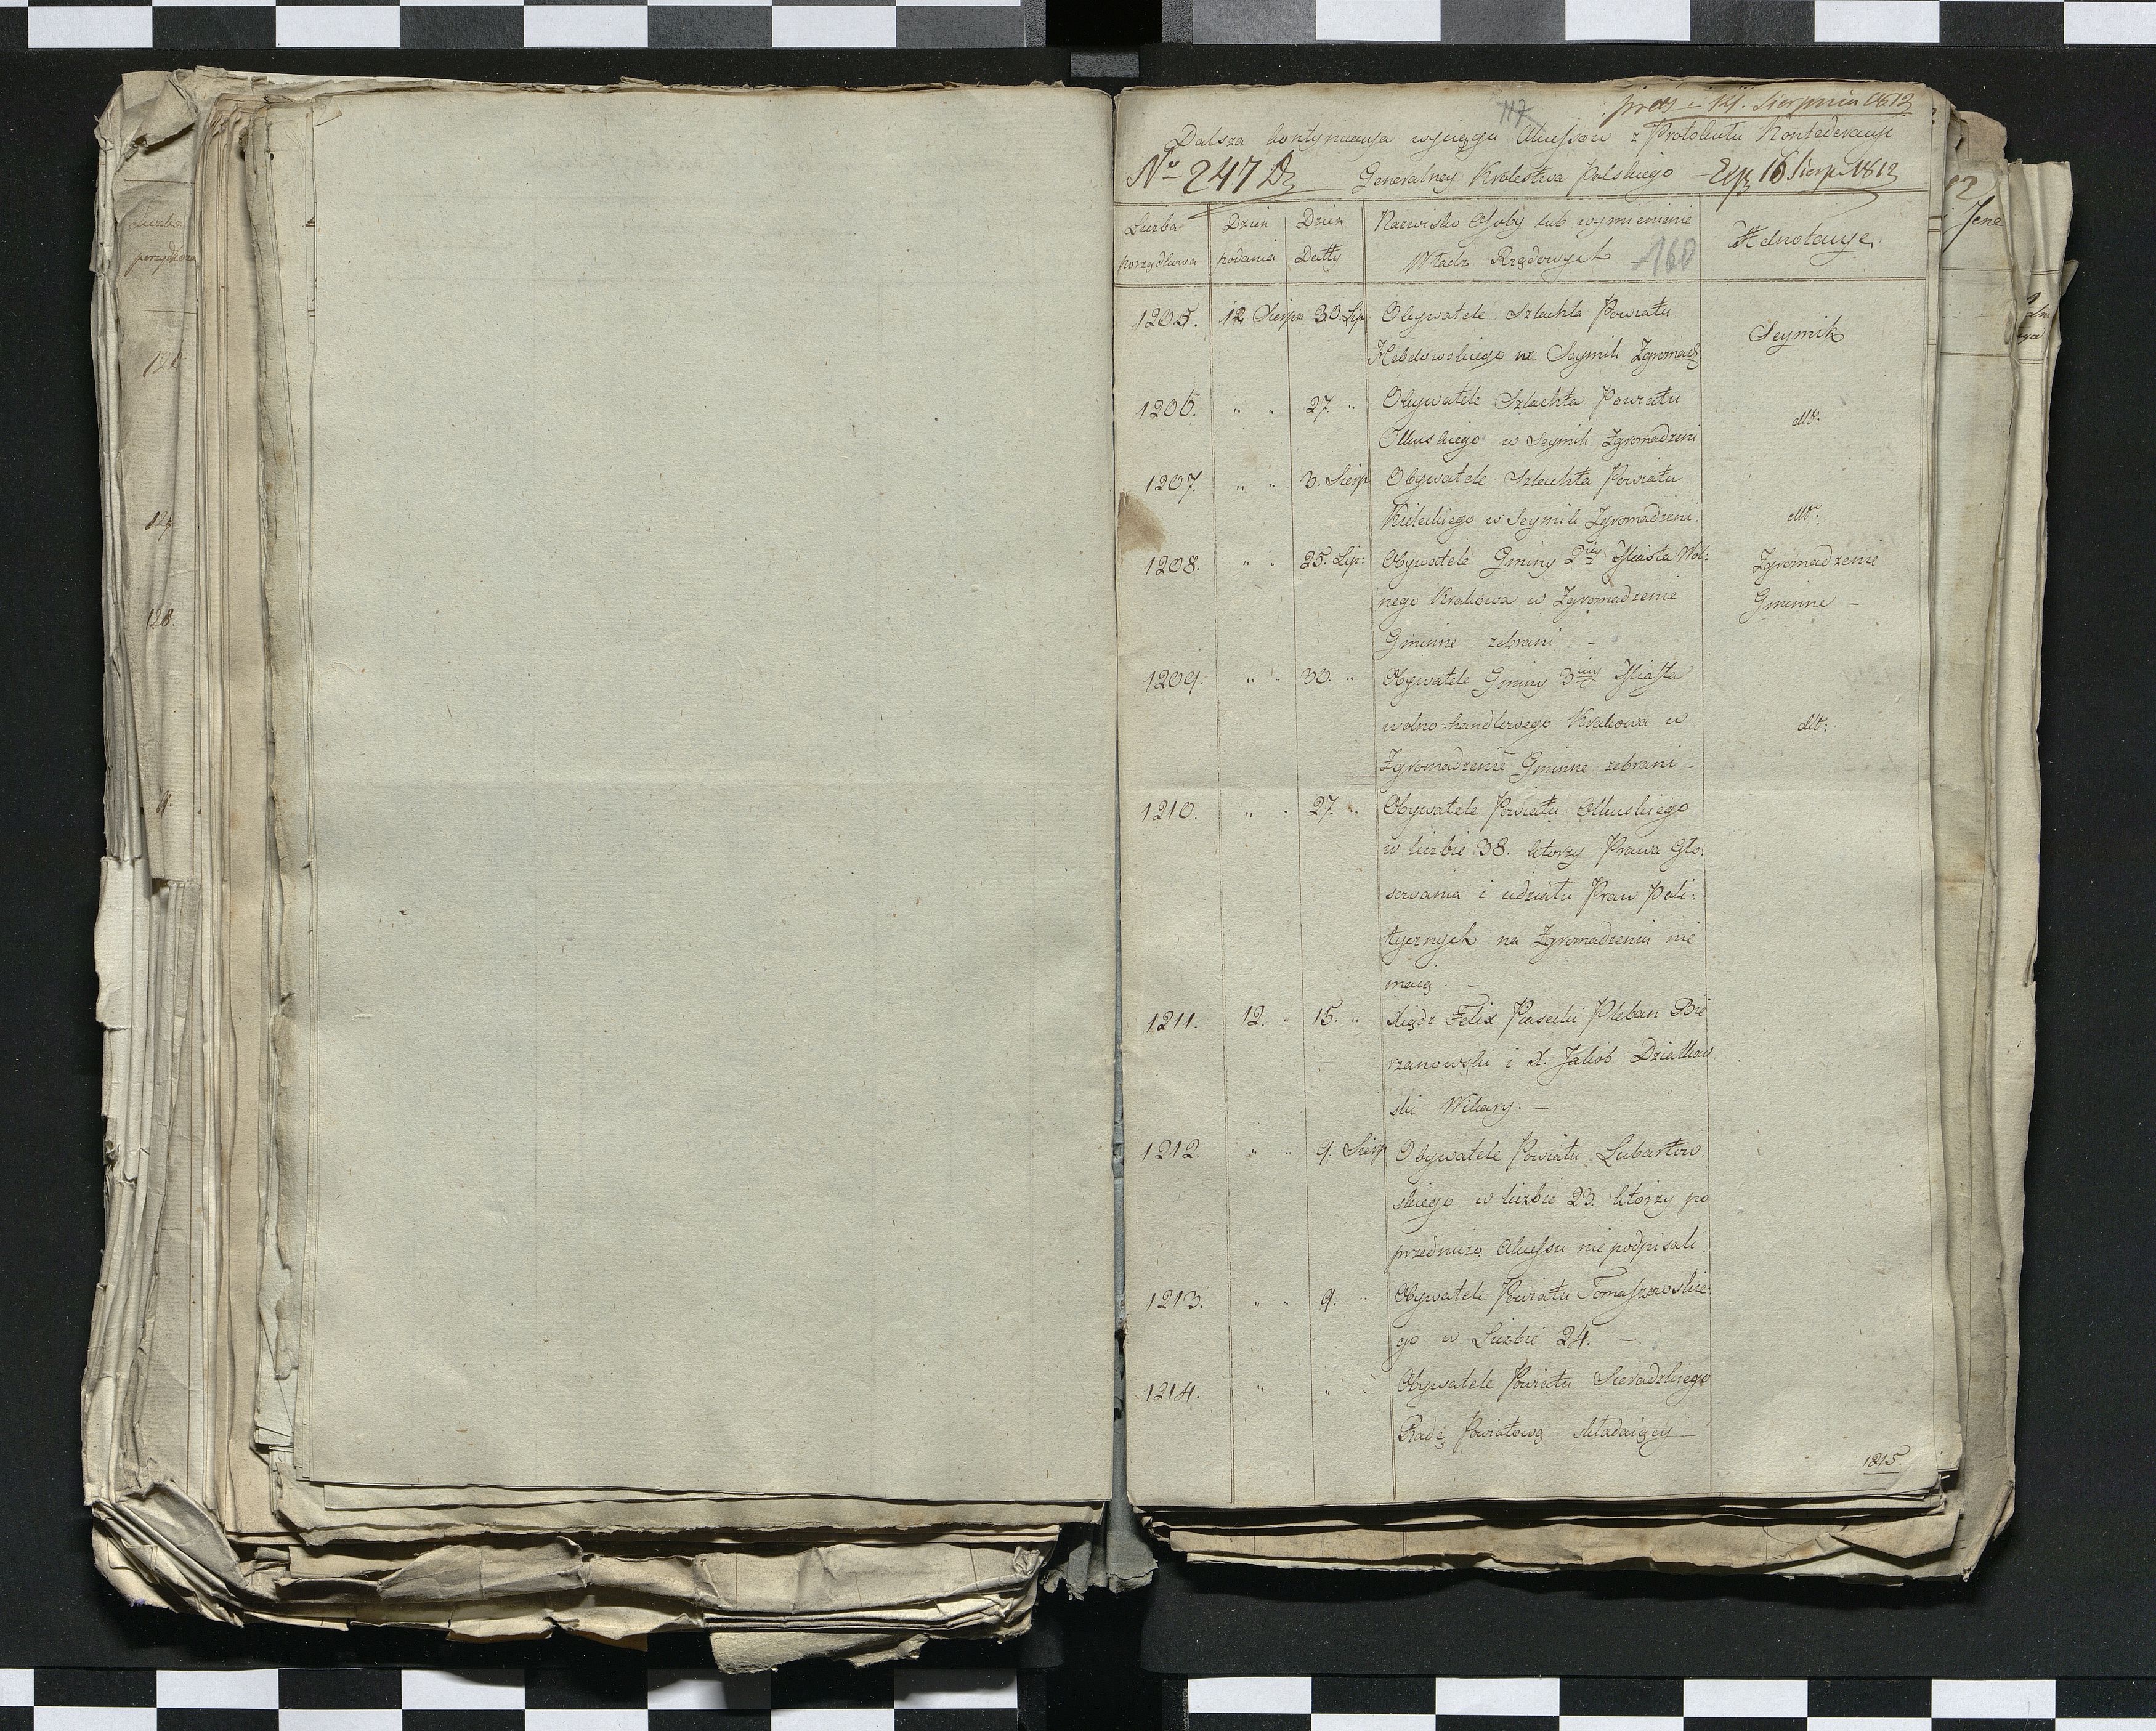 Liczba
porządkowa
128.
117
Sierpnia 1812
Dalsza kontynuacya wyciągu Akcessów z Protokułu Konfederacyi
No 247 Generalney Królestwa Polskiego – Exp 16 Sierp. 1812
Liczba porządkowa | Dzień podania | Dzień Datty | Nazwisko Osoby lub wymienienie Władz Rządowych | Adnotacye
160
1205. 12 Sierpn 30. Lip. Obywatele Szlachta Powiatu
Hebdowskiego na Seymik Zgromadz Seymik
1206. " " 27. " Obywatele Szlachta Powiatu
Olkuskiego w Seymik Zgromadzeni dtto:
1207. " " 3. Sierp Obywatele Szlachta Powiatu
Kieleckiego w Seymik Zgromadzeni. dtto:
1208. " " 25. Lip: Obywatele Gminy 2iey Miasta Wol: Zgromadzenie
nego Krakowa w Zgromadzenie Gminne –
Gminne zebrani –
1209. " " 30. " Obywatele Gminy 3ciey Miasta
wolno=handlowego Krakowa w dtto:
Zgromadzenie Gminne zebrani –
1210. " " 27. " Obywatele Powiatu Olkuskiego
w liczbie 38. którzy Prawa Gło:
sowania i udziału Praw Poli:
tycznych na Zgromadzeniu nie
maią. –
1211. 12. " 15. " Xiądz Felix Piasecki Pleban Bie
rzanowski i X. Jakób Dziatkow
ski Wikary. –
1212. " " 9. Sierp Obywatele Powiatu Lubartow.
skiego w liczbie 23. którzy po
przedniczo Akcessu nie podpisali.
1213. " " 9. " Obywatele Powiatu Tomaszowskie:
go w Liczbie 24. –
1214. " " " Obywatele Powiatu Sieradzkiego
Radę Powiatową składaiący –
1215.